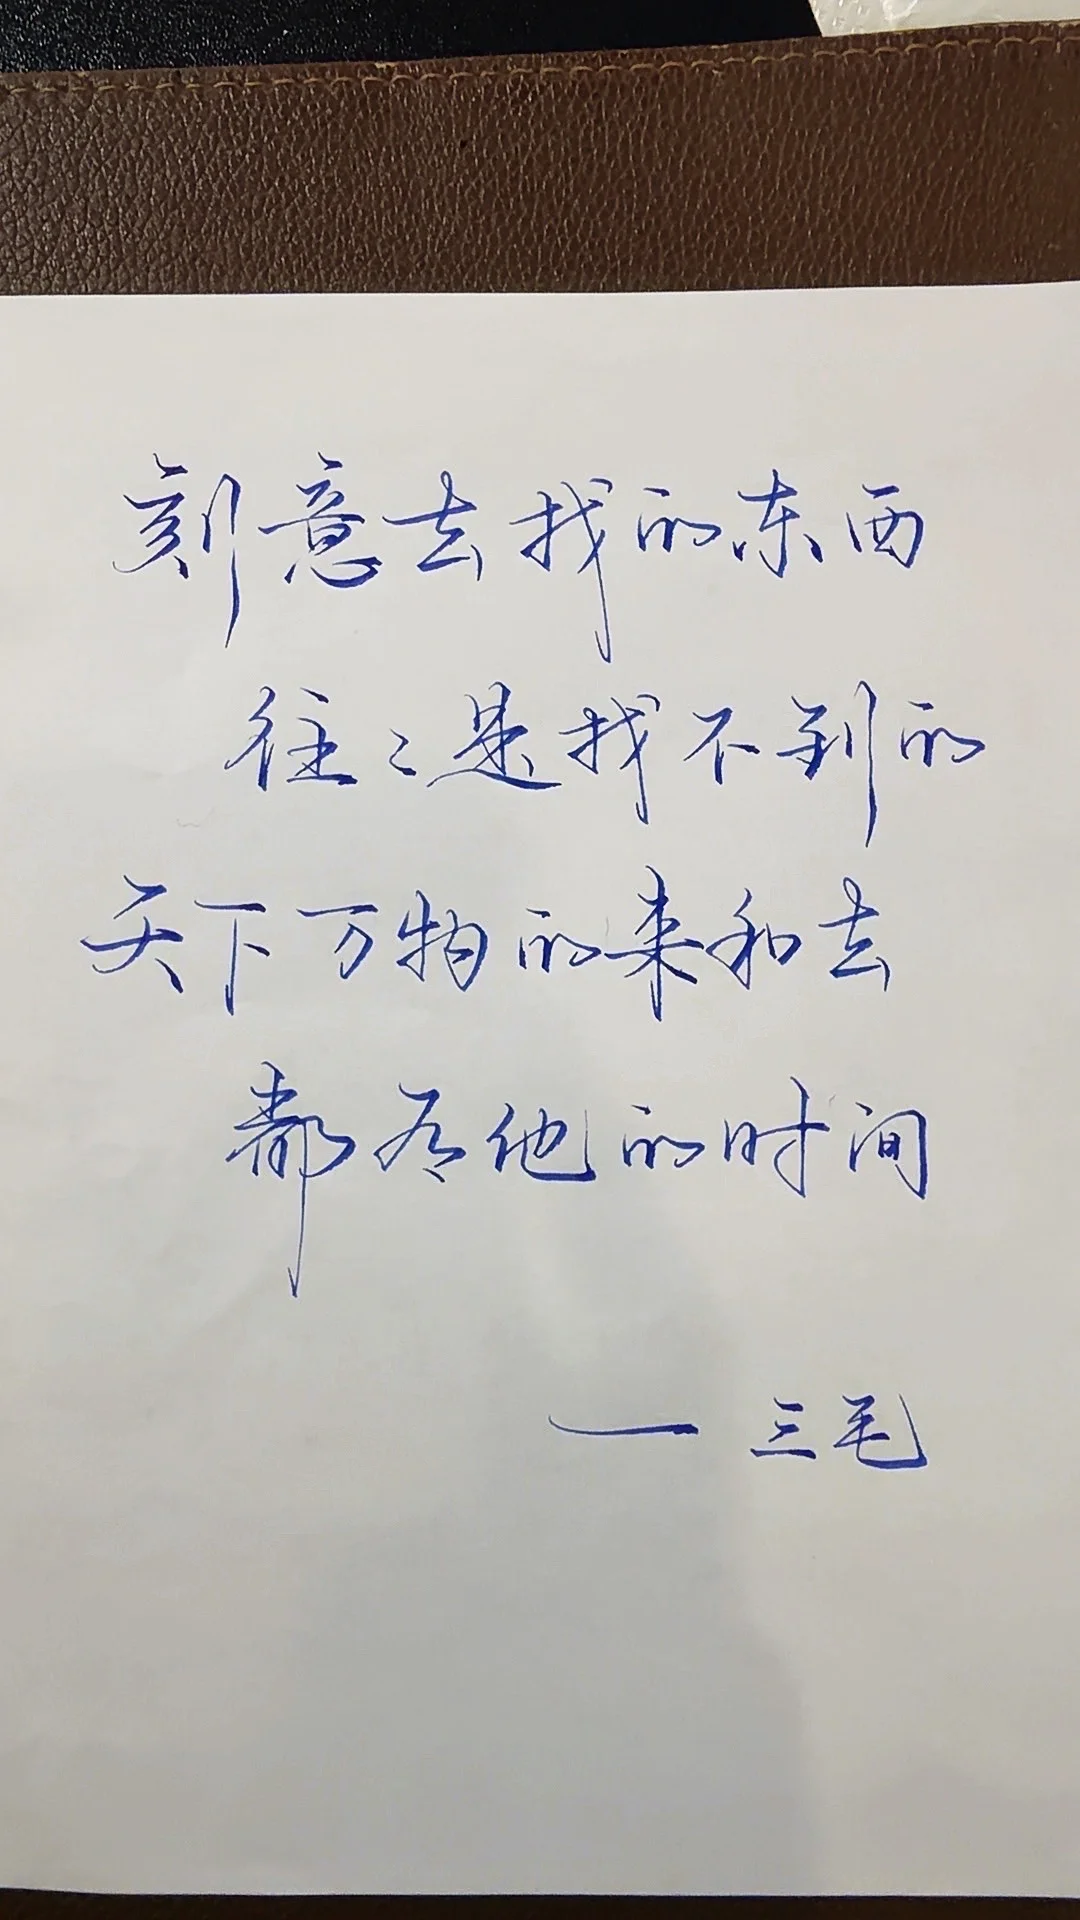 刻意去找的东西
往々是找不到的
天下万物的来和去
都有他的时间
—三毛